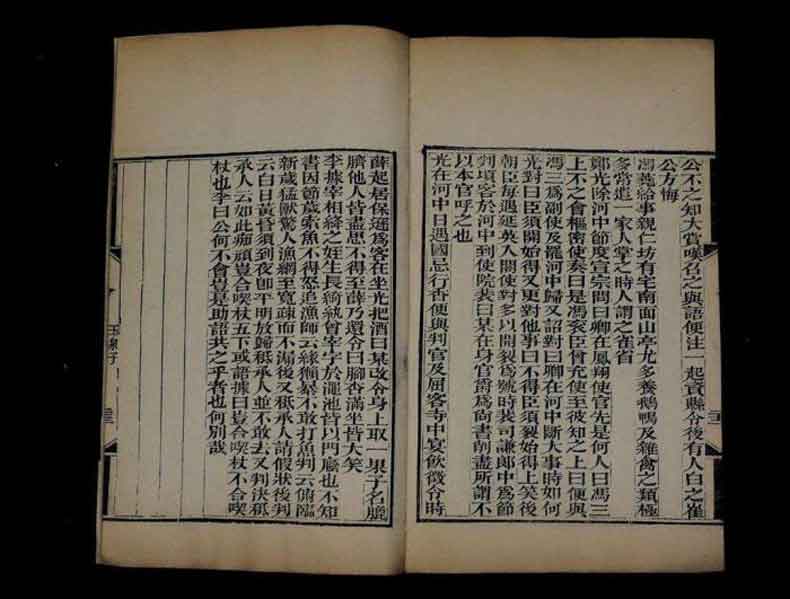 公不之知大賞嘆召之與語便注一起賓縣令後有人白之崔
公方悔
馮給事親仁坊有宅南面山亭尤多養鵝鴨及雜禽之類極
多常遣一家人掌之時人謂之雀省
鄭光除河中節度宣宗問曰卿在鳳翔使官先是何人曰馮三
上不之會樞密使奏曰是馮袞臣曾充使至彼知之上曰便與
馮三爲副使及罷河中歸又詔對曰卿在河中斷大事時如何
光對曰臣須開始得又更對他事曰不得臣須裂始得上笑後
朝臣每遇延英入閣使對多以開裂爲號時裴司謙郎中爲節
判頃客於河中到使院裴曰某在身官爵爲尚書削盡所謂不
以本官呼之也
光在河中日遇國忌行香便與判官及屈客寺中宴飲徵令時
薛起居保遜爲客在坐光把酒曰某改令身上取一果子名膍
臍他人皆盡思不得至薛乃還令曰腳杏滿坐皆大笑
李據宰相絳之姪生長綺紈曾宰字於澠池皆以門廕也不知
書因節歲索魚不得怒追漁師云緣獺暴不敢打魚判云俯臨
新歲猛獸驚人漁網至寬疎而不漏後又秪承人請假狀後判
云白日黃昏須到夜卽平明放歸秪承人並不敢去又判決秪
承人云如此癡頑豈合喫杖五下或語據曰豈合喫杖不合喫
杖也李曰公何不會豈是助語共之乎者也何別哉
玉泉子